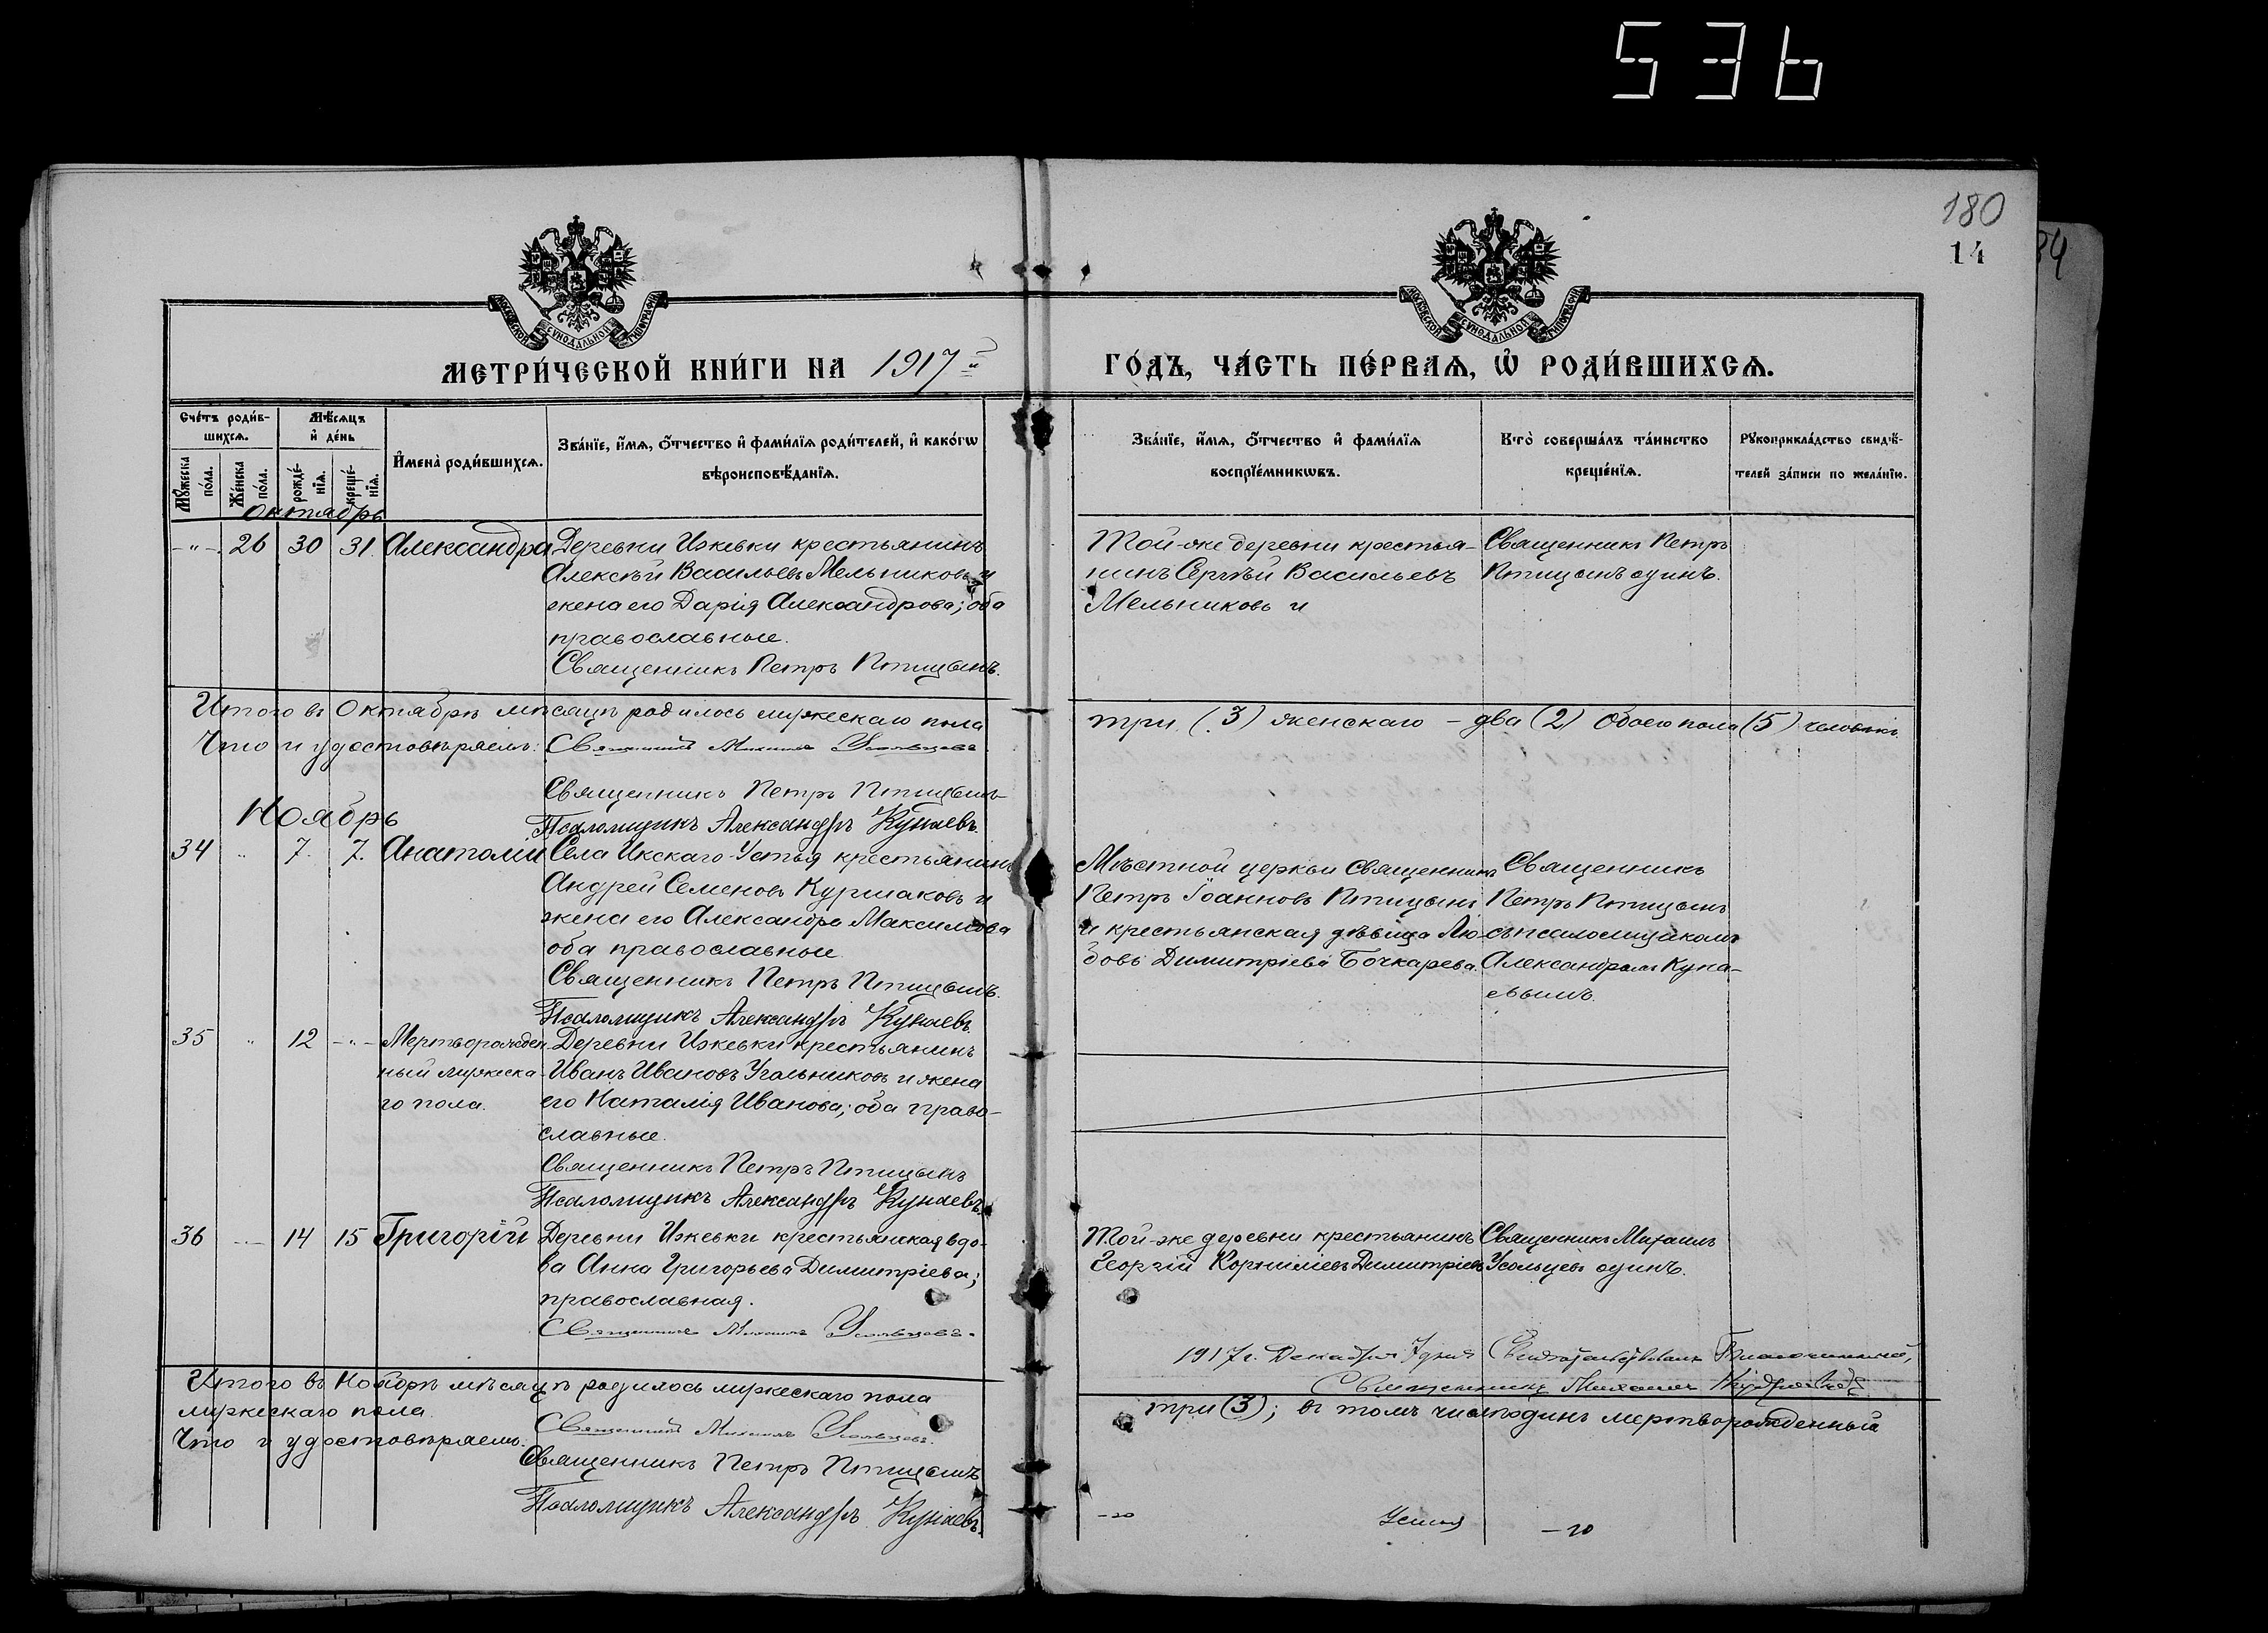 536
180
14
84
МОСКОВСКОЙ СѴНОДАЛЬНОЙ ТИПОГРАФІИ
МОСКОВСКОЙ СѴНОДАЛЬНОЙ ТИПОГРАФІИ
МЕТРИ́ЧЕСКОЙ КНИ́ГИ НА 1917й
ГО́ДЪ, ЧА́СТЬ ПЕ́РВАѦ, Ѡ҆ РОДИ́ВШИХСѦ.
Счéтъ роди́в-
шихсѧ.
Мꙋ́жеска по́ла.
Же́нска по́ла.
Мѣ́сѧцъ
и҆ де́нь
рожде́-нїѧ.
креще́-нїѧ.
И҆мена̀ роди́вшихсѧ.
Зва́нїе, и҆́мѧ, о҆́тчество и҆ фами́лїѧ роди́телей, и҆ како́гѡ
вѣроисповѣ́данїѧ.
Зва́нїе, и҆́мѧ, о҆́тчество и҆ фами́лїѧ
воспрїе́мникѡвъ.
Кто̀ соверша́лъ та́инство
креще́нїѧ.
Рꙋкоприкла́дство свидѣ́-
телей за́писи по жела́нїю.
Октябрь
-"- 26 30 31. Александра Деревни Ижевки крестьянинъ
Алексѣй Васильевъ Мельниковъ и
жена его Дарія Александрова; оба
православные.
Священникъ Петръ Птицынъ.
Той-же деревни крестья-
нинъ Сергѣй Васильевъ
Мельниковъ и
Священникъ Петръ
Птицынъ одинъ.
Итого въ Октябрѣ мѣсяцѣ родилось мужескаго пола
три (3) женскаго - два (2) Обоего пола (5) человѣкъ
Что и удостовѣряемъ: Священникъ Михаилъ Усольцевъ.
Священникъ Петръ Птицынъ
Псаломщикъ Александръ Кунаевъ.
Ноябрь
34 " 7. 7. Анатолій Села Икскаго-Устья крестьянинъ
Андрей Семеновъ Курмаковъ и
жена его Александра Максимова
оба православные.
Священникъ Петръ Птицынъ.
Псаломщикъ Александръ Кунаевъ.
Мѣстной церкви Священникъ
Петръ Іоанновъ Птицынъ
и крестьянская дѣвица Лю-
бовь Димитріева Бочкарева.
Священникъ
Петръ Птицынъ
съ псаломщикомъ
Александромъ Куна-
евымъ.
35 " 12 -"- Мертворожден-
ный мужеска-
го пола.
Деревни Ижевки крестьянинъ
Иванъ Ивановъ Угольниковъ и жена
его Наталія Иванова; оба право-
славные.
Священникъ Петръ Птицынъ
Псаломщикъ Александръ Кунаевъ.
36 14 15 Григорій Деревни Ижевки крестьянская вдо-
ва Анна Григорьева Димитріева;
православная.
Священникъ Михаилъ Усольцевъ.
Той-же деревни крестьянинъ
Георгій Корниліевъ Димитріевъ
Священникъ Михаилъ
Усольцевъ одинъ.
1917 г. Декабря 7 дня Свидѣтельствовалъ Благочинный,
Священникъ Михаилъ
Итого въ Ноябрѣ мѣсяцѣ родилось мужескаго пола
три (3); въ томъ числѣ одинъ мертворожденный
мужескаго пола.
Что и удостовѣряемъ:
Священникъ Михаилъ Усольцевъ.
Священникъ Петръ Птицынъ
Псаломщикъ Александръ Кунаевъ.
-го Устья -го